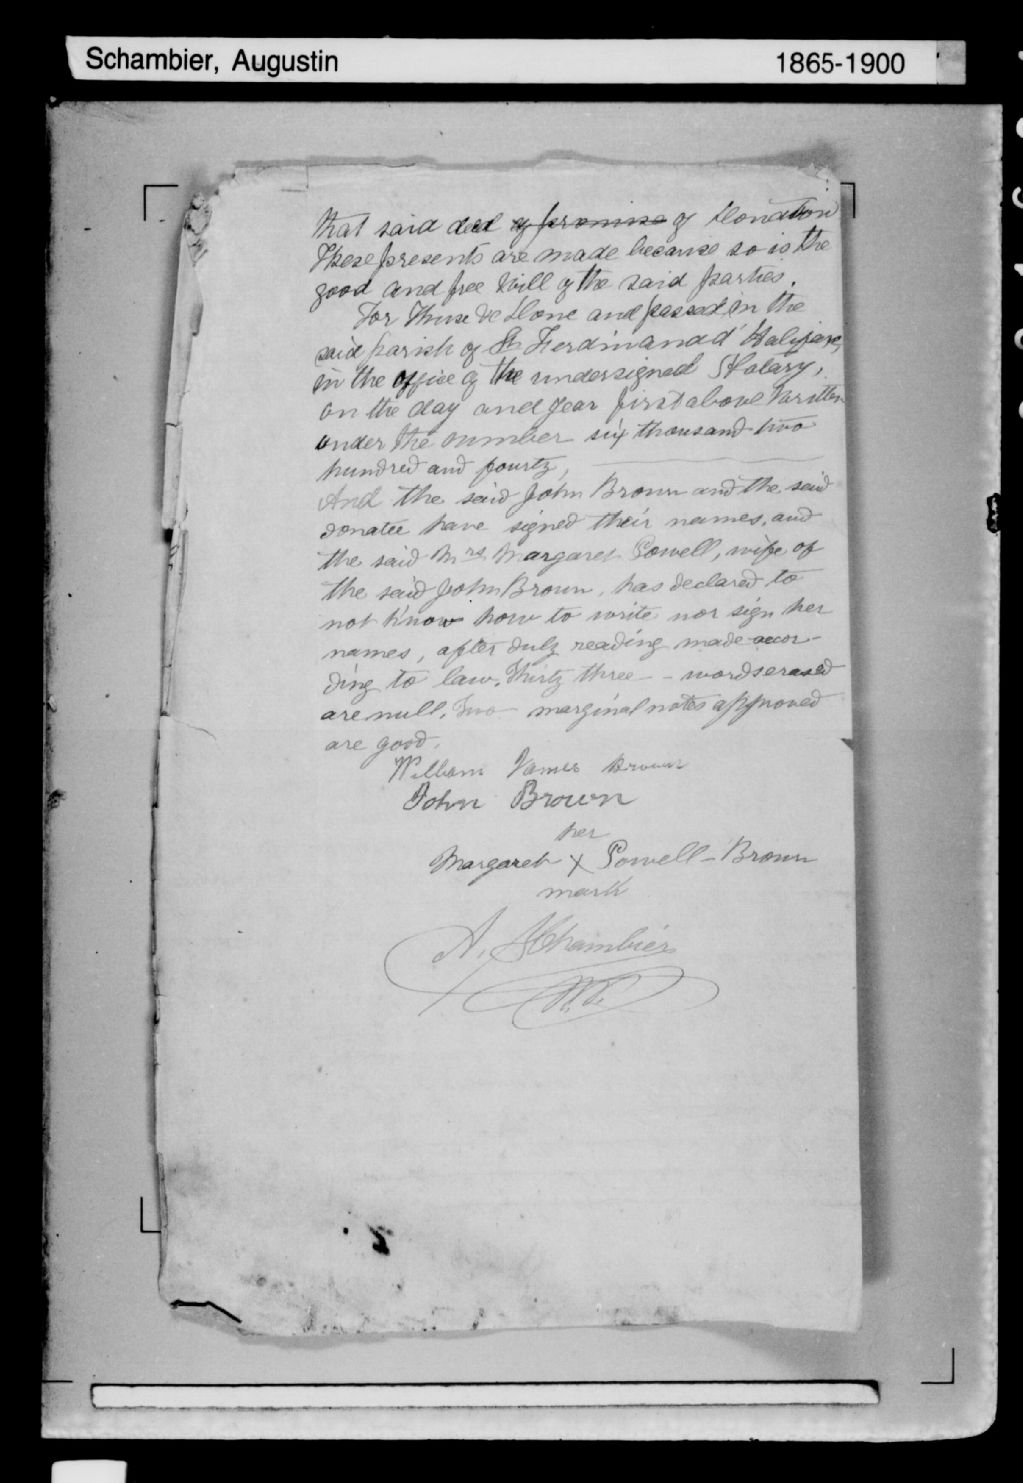 Schambier, Augustin 1865-1900
that said deed of promise of Donation
These presents are made because so is the
good and free Will of the said parties.
For Thus Done and passed in the
said parish of St Ferdinand
in the office of the undersigned Notary,
on the day and year first above Written
under the number six thousand two
hundred and fourty,
And the said John Brown and the said
donatee have signed their names, and
the said Mrs Margaret Powell, wife of
the said John Brown, has declared to
not know how to write nor sign her
names, after duly reading made accor-
ding to law. Thirty three - words erased
are null. Two marginal notes approved
are good.
William James Brown
John Brown
her
Margaret X Powell-Brown
mark
A. SChambier
N.P.